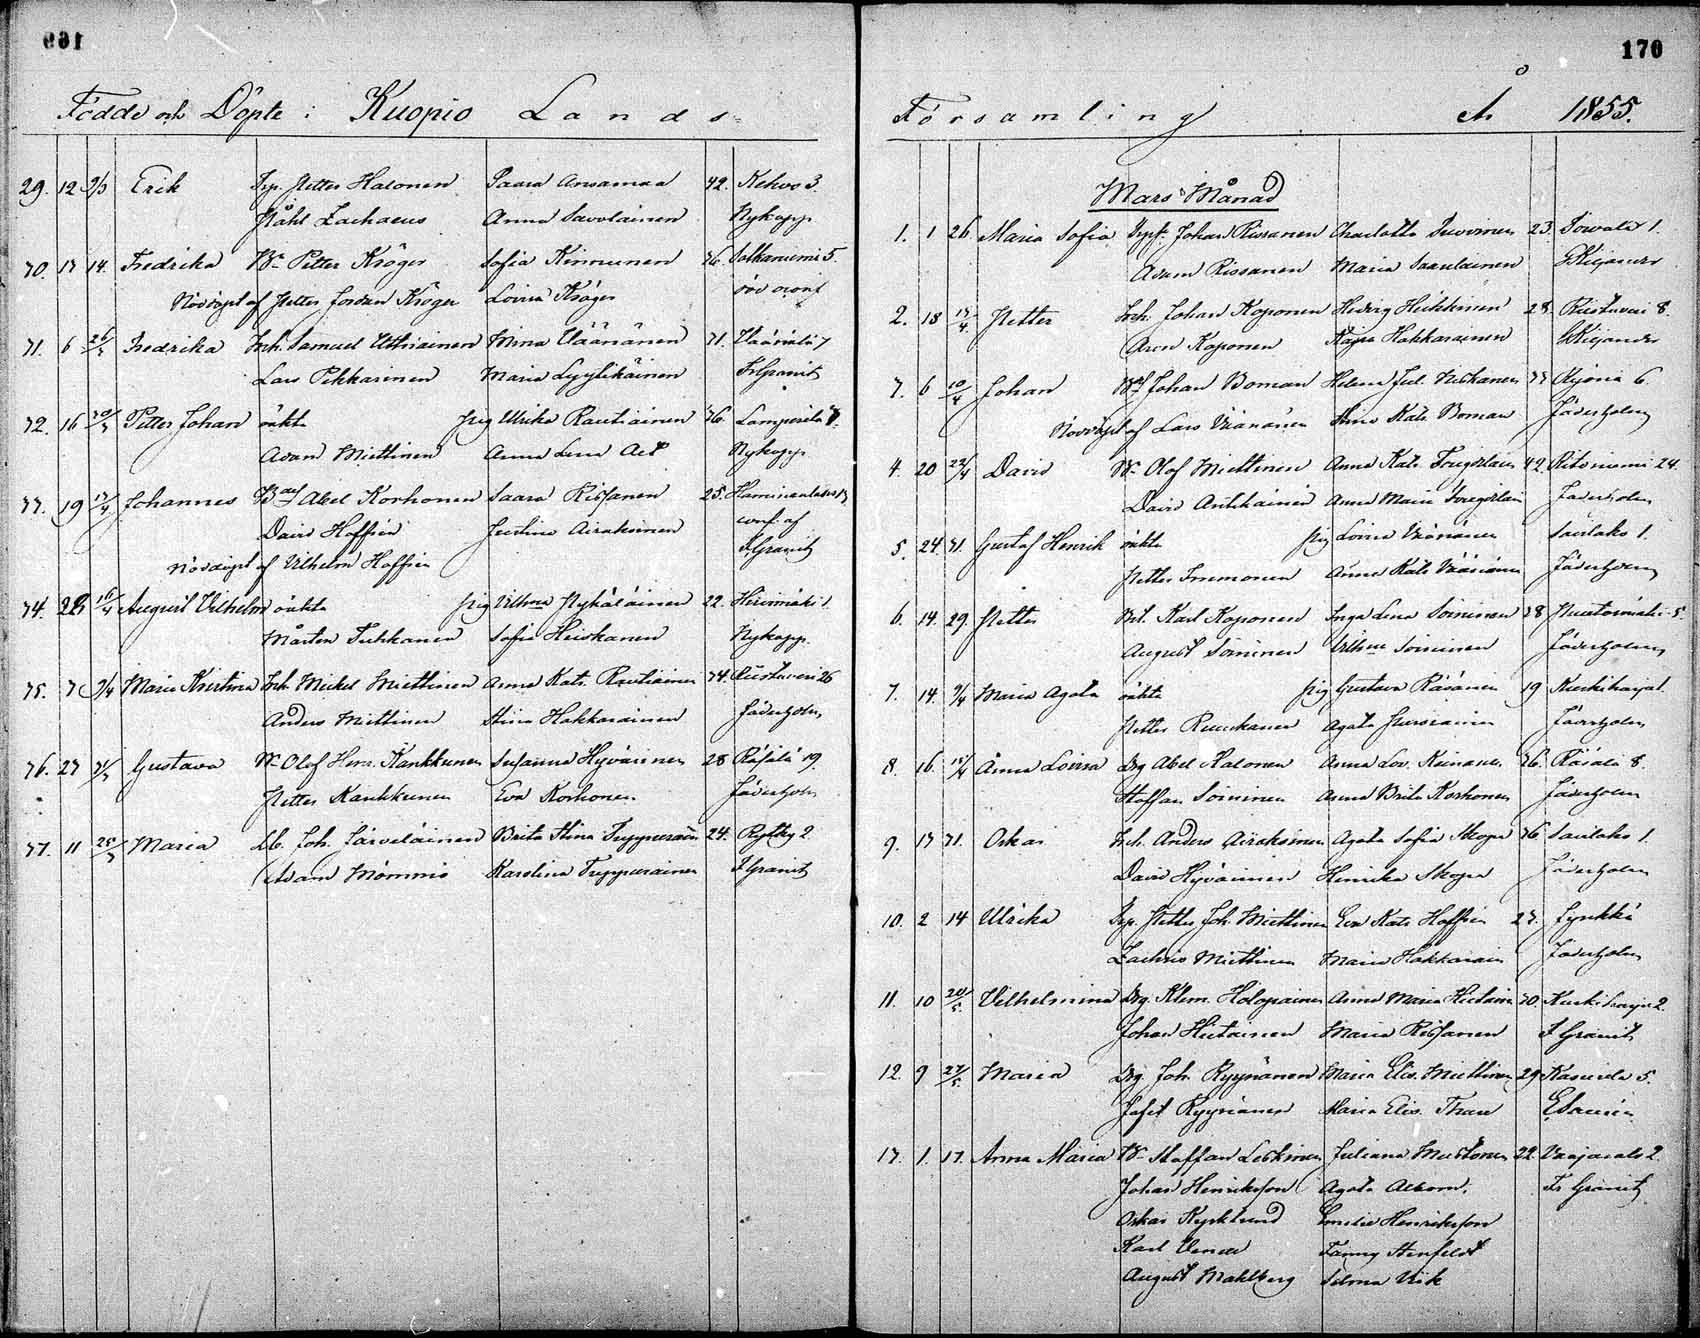 169
Födde och Döpte i Kuopio Lands-
29. 12 9/3 Erik Petter Halonen Saara Ansamaa 42. Kehvo 3.
Ståhl Zachaeus Anna Savolainen Nykopp
30. 13 14. Fredrika Petter Kröger Sofia Kinnunen 36. 5
Nöddöpt af Petter Jordan Kröger Lovisa Kröger
31. 6 26/3 Fredrika Inh. Samuel Uthriainen Mina Väänänen 31. Väänälä 7
Lars Pekkarinen Maria Lyylikäinen Fr Granit
32. 16 Petter Johan oäkta pig Ulrika Rautiainen 36. Lamperila
Adam Miettinen Anna Lena Nykopp
33. 19 13/4 Johannes Abel Korhonen Saara Rissanen 25. Haminalaks 13
David Hoffrén Justina Airaksinen conf. af
Nöddöpt af Vilhelm Hoffrén F. Granit
34. 28 16/4 August Vilhelm oäkta pig Vilhma Pykäläinen 22. Hirvimäki 1.
Mårten Tuhkanen Sofia Heiskanen Nykopp.
35. 3 9/4 Maria Kristina Inh. Mickel Miettinen Anna Kat. Rautiainen 34. Riistavesi 26
Anders Miettinen Stina Hakkarainen Jäderholm
36. 27 Gustava Olof Henr. Kankkunen Susanna Hyvärinen 28 Räsälä 19.
Petter Kankkunen Eva Korhonen Jäderholm
37. 11 25/3 Maria Joh. Järveläinen Brita Stina Tuppurain 24. Rytky 2
Adam Mömmö Karolina Tuppurainen F Granit
170
Församling År 1855.
Mars Månad
1. 1 26 Maria Sofia Johan Rissanen Charlotta 23. 1.
Adam Rissanen Maria Saarelainen Kiljander
2. 18 13/4 Petter Inh. Johan Koponen Hedvig Heikkinen 28. Riistavesi 8.
Aron Koponen Kajsa Hakkarainen Kiljander
3. 6 10/4 Johan Johan Boman Helena Jul. Miskanen 33 6.
Nöddöpt af Lars Väänänen Stina Kat. Boman Jäderholm
4. 20 22/4 David Olof Miettinen Anna Kat. 42. Ritoniemi 24.
David Antikainen Anna Maria Jäderholm
5. 24. 31. Gustaf Henrik oäkta pig Lovisa Väänänen Savilaks 1.
Petter Immonen Anna Kat. Väänänen Jäderholm
6. 14. 29. Petter Karl Koponen Inga Lena Soininen 38 5.
August Soininen Vilhma Soininen Jäderholm
7. 14. 9/4 Maria Agata oäkta pig Gustava Räsänen 19 Kurkiharju 1.
Petter Ruuskanen Agata Jäderholm
8. 16. 15/4 Anna Lovisa Abel Halonen Anna Lov. Keinanen 26. Räsälä 8.
Staffan Soininen Anna Brita Korhonen Jäderholm
9. 13 31. Oskar Inh. Anders Airaksinen Agata Sofia Skopa 36 Savilaks 1.
David Hyvärinen Henrika Skopa Jäderholm
10. 2 14 Ulrika Petter Joh. Miettinen Eva Kat. Hoffrén 23. Lynkkä
Zachris Miettinen Maria Hakkarain Jäderholm
11. 10 20/5 Vilhelmina Klem. Holopainen Anna Maria 30. Kurkiharju 2.
Johan Hietainen Maria Rissanen F Granit
12. 9 27/5 Maria Joh. Ryynänen Maria Elis. Miettinen 29 Kasurila 5.
Josef Ryynänen Maria Elis.
13. 1. 17. Anna Maria Staffan Leskinen Juliana Mustonen 32. 2.
Johan Henriksson Agata Fr Granit
Oskar Kyrklund Emilie Henriksson
Karl Fanny Stenfeldt
August Mahlberg Selma